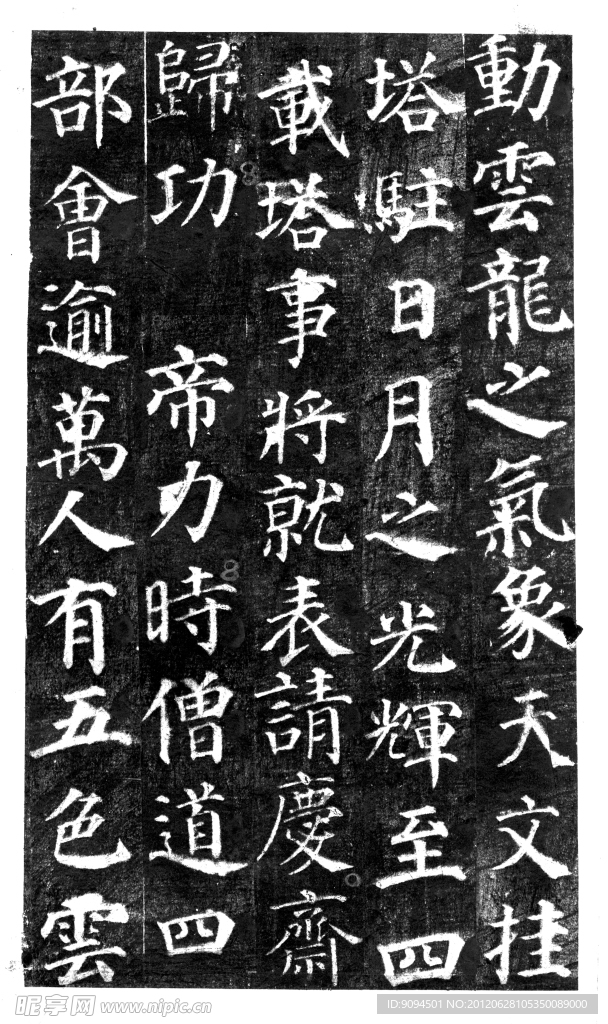 動雲龍之氣象天文挂
塔駐日月之光輝至四
載塔事將就表請慶齋
歸功 帝力時僧道四
部會逾萬人有五色雲
昵享网 www.nipic.cn
ID:9094501 NO:20120628105350089000